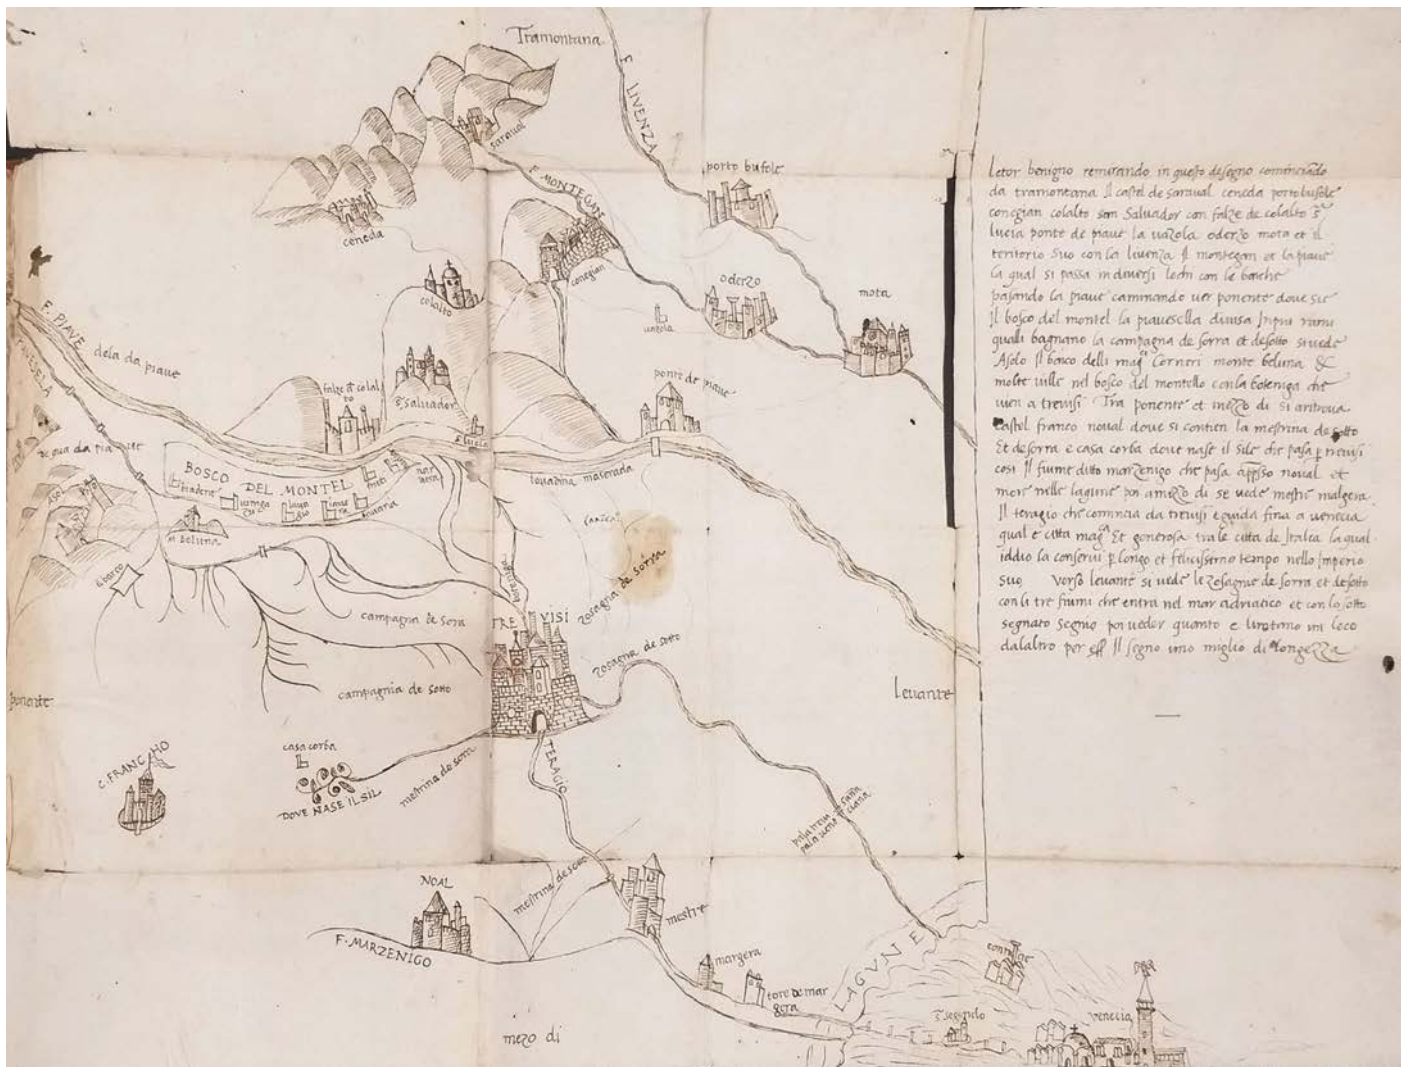 Tramontana
F. LIVENZA
saraual
porto bufole
F. MONTEGAN
ceneda
conegian
colalto
oderzo
mota
uazola
F. PIAVE
dela da piaue
PIAVESELA
falze colal
to
S. Saluador
ponte de piaue
S. lucia
de qua da piaue
BOSCO DEL MONTEL
biadene
M. Beluna
il barco
louadina maserada
zosagna de sorra
campagna de sora
TREVISI
zosagna de sotto
campagnia de sotto
ponente
Leuante
C. FRANCHO
casa corba
DOVE NASE IL SIL
mestrina de sora
TERAGIO
mestrina de sotto
NOAL
F. MARZENIGO
mestre
margera
tore de mar
gera
LAGVNE
S. segondo
venecia
mezo di
Letor benigno remirando in questo desegno cominciando
da tramontana Il castel de saraual ceneda portobufole
conegian colalto san Saluador con falze de colalto S.
lucia ponte de piaue la uazola oderzo mota et il
territorio suo con la liuenza Il montegan et la piaue
la qual si passa in diuersi lochi con le barche
pasando la piaue caminando uer ponente doue sie
Il bosco del montel la piauesella diuisa In piu rami
qualli bagnano la campagna de sorra et desotto si uede
Asolo Il barco delli mag.ci Corneri monte beluna &
molte uille nel bosco del montello con la boteniga che
uien a treuisi Tra ponente et mezo di si aritroua
Castel franco noual doue si contien la mestrina de sotto
Et de sorra e casa corba doue nase il sile che pasa p treuisi
cosi Il fiume ditto marzenigo che pasa apsso noual et
more nelle lagune poi a mezo di se uede mestre malgera
Il teragio che comincia da treuisi e guida fina a uenecia
qual e citta mag.ca Et generosa tra le citta de Italia la qual
iddio la conserui p longo et felicissimo tempo nello Imperio
suo Verso leuante si uede le zosagne de sorra et desotto
con li tre fiumi che entra nel mar adriatico et con lo sotto
segnato segno poi ueder quanto e lontano un loco
dalaltro per Il segno uno miglio di longezza